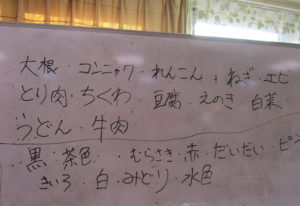 大根・コンニャク・れんこん・ねぎ・エビ
とり肉・ちくわ・豆腐・えのき・白菜
うどん・牛肉
黒・茶色・むらさき・赤・だいだい・ピン
きいろ・白・みどり・水色